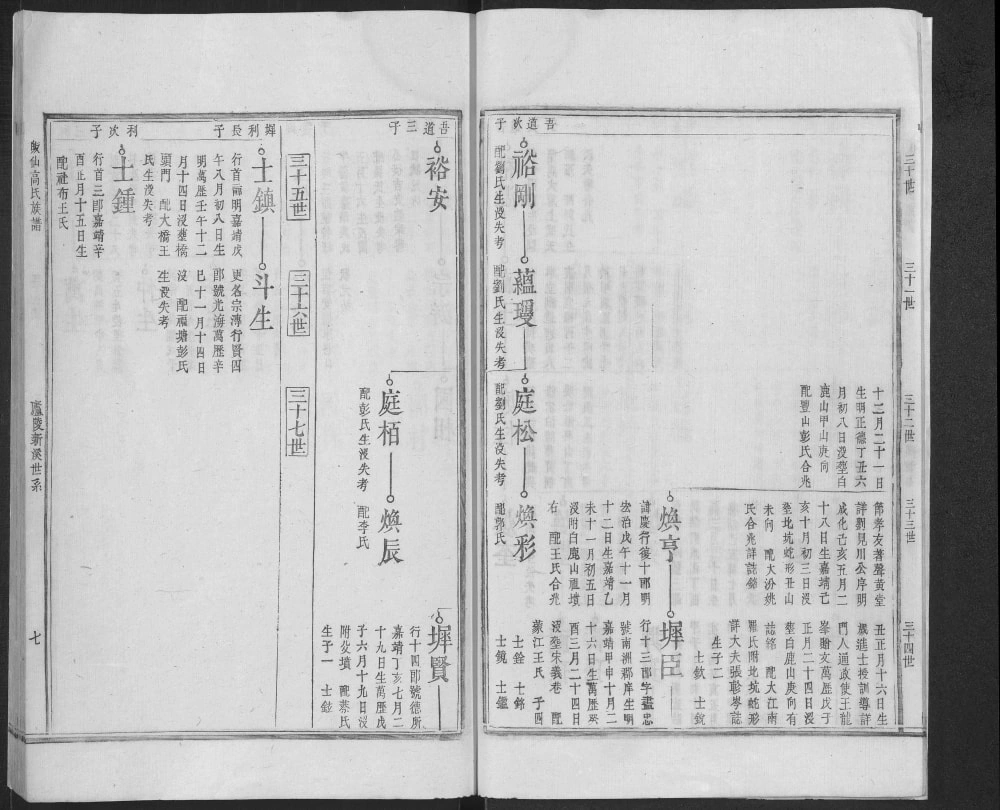 三十世
三十一世
三十二世
三十三世
三十四世
十二月二十一日
生明正德丁丑六
月初八日沒塟白
鹿山甲山庚向
配豐山彭氏合兆
節孝友著聲黃堂
詳劉見川公序明
成化己亥五月二
十八日生嘉靖己
亥十月初三日沒
塟北坑蛇形丑山
未向 配大汾姚
氏合兆詳誌錄
丑正月十六日生
楓進士授訓導詳
門人通政使王龍
峯贈文萬歷戊子
正月二十四日沒
塟白鹿山庚向有
誌銘 配大江南
羅氏附北坑蛇形
詳大夫張聆岑誌
生子二
士欽 士銳
煥亨
墀臣
請慶行後十郎明
宏治戊午十一月
十二日生嘉靖乙
未十一月初五日
沒附白鹿山祖墳
右 配王氏合兆
行十三郎字盡忠
號南洲郡庠生明
嘉靖甲申十月二
十六日生萬歷癸
酉三月二十四日
沒塟宋義巷 配
蒙江王氏 子四
士銓 士銘
士鏡 士鑑
吾道次子
裕剛
配劉氏生沒失考
蘊璦
配劉氏生沒失考
庭松
配劉氏生沒失考
煥彩
配郭氏
吾道三子
裕安
庭栢
配彭氏生沒失考
煥辰
配李氏
墀賢
行十四郎號德所
嘉靖丁亥七月二
十九日生萬歷戊
子六月十九日沒
附父墳 配蔡氏
生子一 士鉉
三十五世
三十六世
三十七世
墀利長子
士鎮
行首福明嘉靖戊
午八月初八日生
明萬歷壬午十二
月十四日沒塟橋
頭門 配大橋王
氏生沒失考
斗生
更名宗溥行賢四
郎號光海萬歷辛
巳十一月十四日
沒 配福塘彭氏
生沒失考
利次子
士鍾
行首三郎嘉靖辛
酉正月十五日生
配社布王氏
陂仙高氏族譜
廬陵新溪世系
七